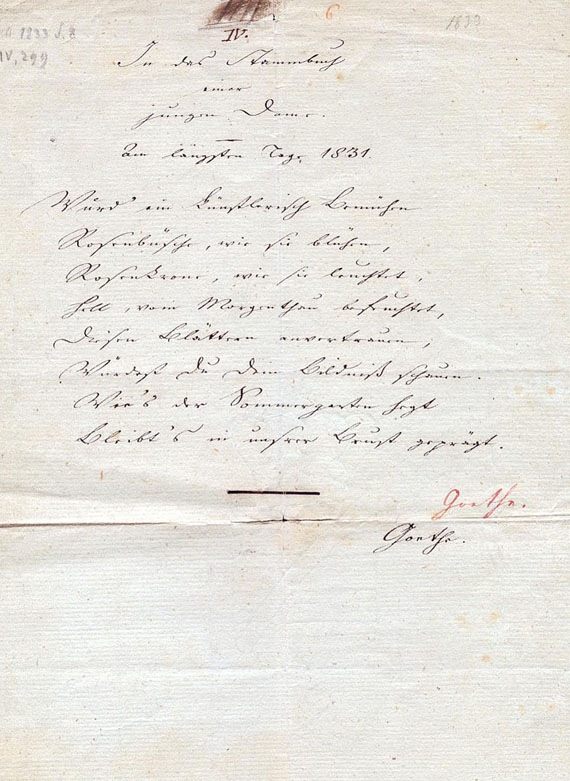 1833 S. 8
IV, 299
6
1833
IV.
In das Stammbuch
einer
jungen Dame.
Am längsten Tage 1831.
Würd' ein künstlerisch Bemühen
Rosenbüsche, wie sie blühen,
Rosenkrone, wie sie leuchtet,
Hell, vom Morgenthau befeuchtet,
Diesen Blättern anvertrauen,
Würdest Du Dein Bildniß schauen.
Wie's der Sommergarten hegt
Bleibt's in unsrer Brust geprägt.
Goethe.
Goethe.